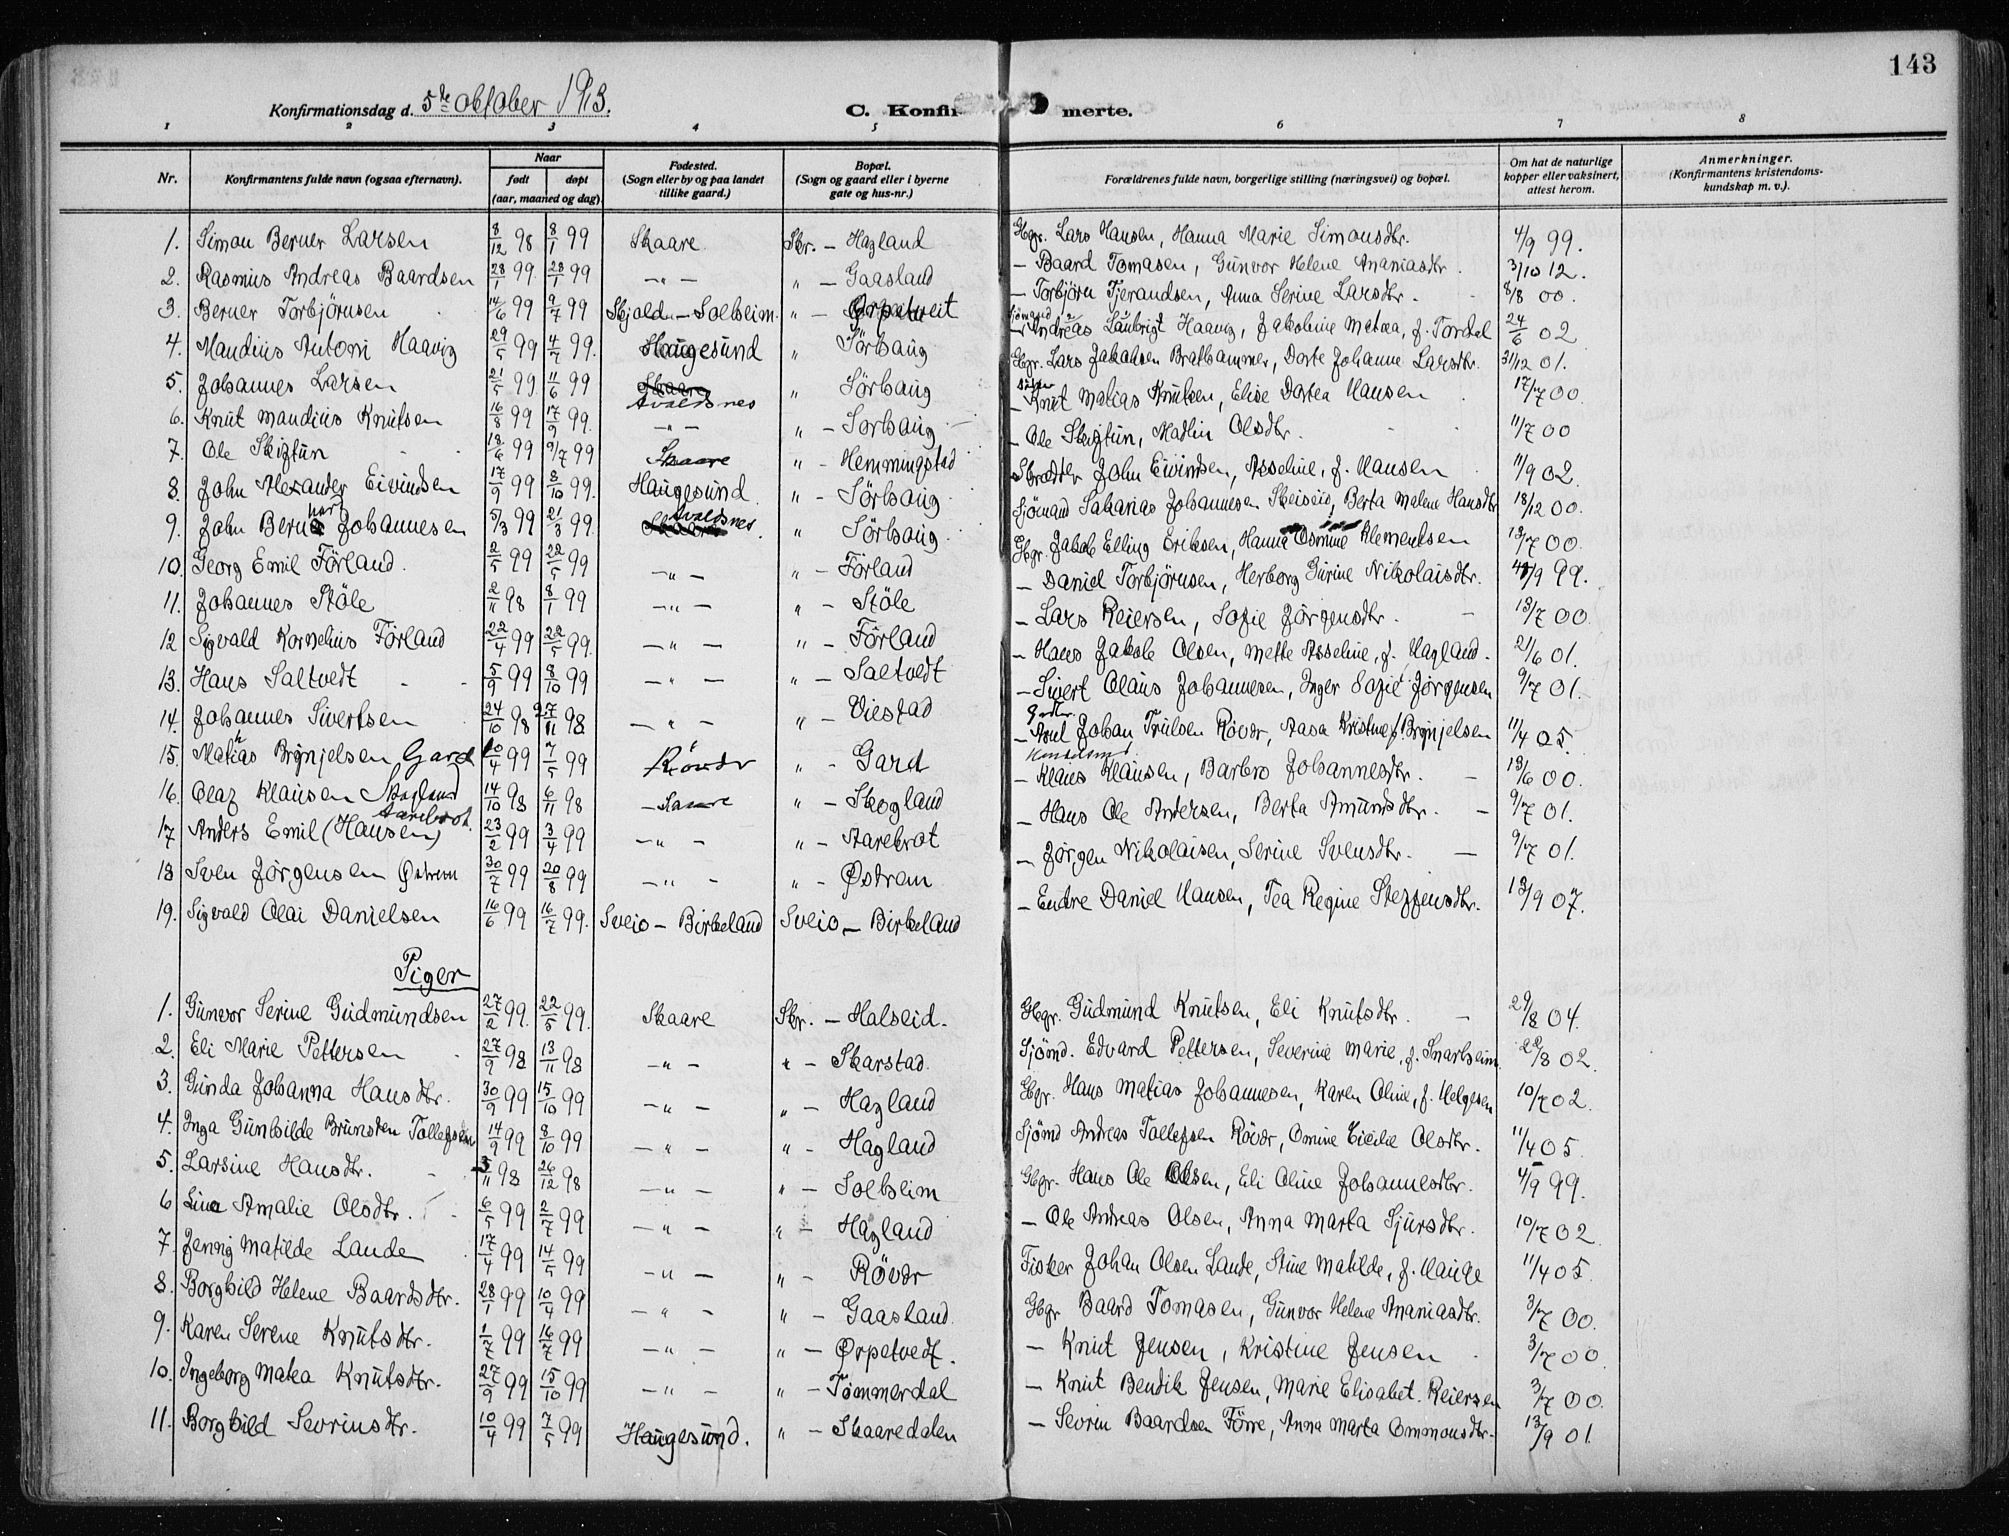 143
Konfirmationsdag d. 5te oktober 1913. C. Konfir merte.
1 2 3 4 5 6 7 8
Nr. Konfirmantens fulde navn (ogsaa efternavn). Naar født døpt (aar, maaned og dag) Fødested. (Sogn eller by og paa landet tillike gaard.) Bopæl. (Sogn og gaard eller i byerne gate og hus-nr.) Forældrenes fulde navn, borgerlige stilling (næringsvei) og bopæl. Om hat de naturlige kopper eller vaksinert, attest herom. Anmerkninger. (Konfirmantens kristendomskundskap m. v.).
1. Simon Berner Larsen 8/12 98 8/1 99 Skaare Skr. - Hagland Gbgr. Lars Hansen, Hanna Marie Simonsdtr. 4/9 99.
2. Rasmus Andreas Baardsen 28/1 99. 23/1 99 -"- " - Gaasland - Baard Tomasen, Gunvor Helene Ananiasdtr. 3/10 12.
3. Berner Torbjörnsen 14/6 99 9/7 99 Skjold - Solheim. " - Ørpetveit - Torbjörn Tjerandsen, Anna Serine Larsdtr. 8/8 00.
4. Mandius Antoni Haavig 29/5 99 4/7 99. Haugesund " Sörhaug Sjömand Andreas Laurigt Haavig, Jakobine Matea, f. Tordal 24/6 02
5. Johannes Larsen 21/5 99. 11/6 99 Skaare Avaldsnes " Sörhaug Gbgr. Lars Jakobsen Bratthammer, Dorte Johanna Larsdtr. 31/12 01.
6. Knut Mandius Knutsen 16/8 99 17/9 99. -"- " - Sörhaug - Knut Matias Knutsen, Elise Dortea Hansen 17/7 00.
7. Ole Skiftun 18/6 99 9/7 99 Skaare " - Hemmingstad - Ole Skiftun, Madlin Olsdtr. 11/7 00
8. John Alexander Eivindsen 17/9 99 8/10 99. Haugesund " - Sörhaug Skrædder John Eivindsen, Asseline, f. Hansen 11/9 02.
9. John Bernhart Johannesen 5/3 99 21/3 99. Skaare Avaldsnes. " Sörhaug Sjömand Sakarias Johannesen Skeiseid, Berta Malene Hansdtr 18/12 00.
10. Georg Emil Förland. 2/5 99 22/5 99 -"- " - Förland Gbgr. Jakob Elling Eriksen, Hanna Osmine Klementsen 13/7 00.
11. Johannes Stöle 2/11 98 8/1 99 -"- " - Stöle - Daniel Torbjörnsen, Herborg Gurine Nikolaisdtr. 4/9 99.
12 Sigvald Kornelius Förland 22/4 99 22/5 99. -"- " - Förland - Lars Reiersen, Sofie Jörgensdtr. 13/7 00.
13. Hans Saltvedt 5/9 99 8/10 99 -"- " - Saltvedt - Hans Jakob Olsen, Mette Asseline, f. Hagland. 21/6 01.
14. Johannes Sivertsen 24/10 98 27/11 98. -"- " - Viestad - Sivert Olaus Johannesen, Inger Sofie Jörgensen 9/7 01.
15. Mathias Brynjelsen Gard 10/4 99 7/5 99 Rövær " - Gard - Johan Trulsen Rövær, Aasa Kristine f. Brynjelsen 11/4 05.
16. Olaf Klausen Skogland 14/10 98 6/11 98 Skaare " - Skogland - Klaus Klausen, Barbro Johannesdtr. 13/6 00.
17 Anders Emil (Hansen) Aarebrot. 23/2 99 3/4 99 -"- " - Aarebrot - Hans Ole Andersen, Berta Amundsdtr. 9/7 01.
18 Sven Jörgensen Østrem 30/7 99 20/8 99 -"- " - Østrem - Jörgen Nikolaisen, Serine Svensdtr. 9/7 01.
19. Sigvald Olai Danielsen 16/6 99 16/7 99. Sveio - Birkeland Sveio - Birkeland - Endre Daniel Hansen, Tea Regine Steffensdtr. 12/9 07.
Piger
1. Gunvor Serine Gudmundsen 27/2 99. 22/5 99. Skaare Skr. - Halseid. Gbgr. Gudmund Knutsen, Eli Knutsdtr. 29/8 04.
2. Eli Marie Pettersen 27/9 98 13/11 98 -"- " - Skarstad. Sjömd. Edvard Pettersen, Severine Marie, f. Snarheim 22/8 02.
3. Gunda Johanna Hansdtr. 30/9 99 15/10 99 -"- " - Hagland Gbgr. Hans Matias Johannesen, Karen Oline, f. Helgesen 10/7 02.
4. Inga Gunhilde Brunsten Tollefsen 14/9 99 8/10 99 -"- " - Hagland Sjömd Andreas Tollefsen Rövær, Omine Cicilie Olsdtr. 11/4 05.
5. Larsine Hansdtr. 5/11 98 26/12 98 -"- " - Solheim Gbgr. Hans Ole Olsen, Eli Oline Johannesdtr. 4/9 99.
6 Lina Amalie Olsdtr. 6/5 99 2/7 99 -"- " - Hagland - Ole Andreas Olsen, Anna Marta Sjursdtr. 10/7 02.
7. Jenny Matilde Lande 17/4 99 14/5 99 -"- " - Rövær Fisker Johan Olsen Lande, Stine Matilde, f. Hauge 11/4 05.
8. Borghild Helene Baardsdtr. 28/1 99 10/4 99 -"- " - Gaasland Gbgr Baard Tomasen, Gunvor Helene Ananiasdtr. 3/7 00.
9. Karen Serene Knutsdtr. 1/7 99 16/7 99 -"- " - Ørpetvedt. - Knut Jensen, Kristine Jensen 3/7 00.
10. Ingeborg Matea Knutsdtr. 27/9 99 15/10 99 -"- " - Tömmerdal - Knut Bendik Jensen, Marie Elisabet Reiersen 3/7 00.
11. Borghild Sevrinsdtr. 10/4 99 7/5 99 Haugesund. " - Skaaredalen - Sevrin Baardsen Förre, Anna Marta Ommonsdtr. 13/9 01.